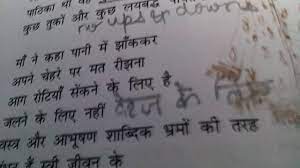 कुछ तुकों और कुछ लयबद्ध
no ups & downs
माँ ने कहा पानी में झाँककर
अपने चेहरे पर मत रीझना
आग रोटियाँ सेंकने के लिए है
जलने के लिए नहीं दहेज के लिए
वस्त्र और आभूषण शाब्दिक भ्रमों की तरह
स्त्री जीवन के